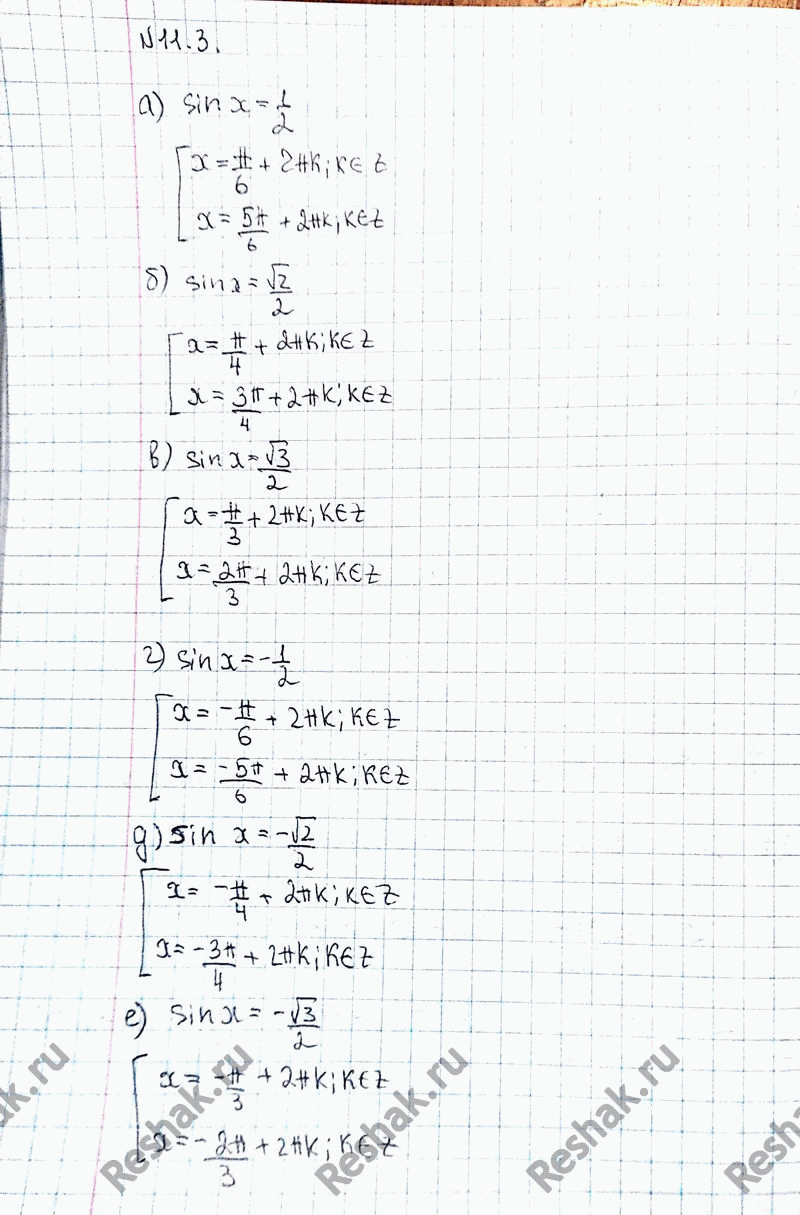 N11.3.
а) sin x = 1/2
x = π/6 + 2πk; k∈Z
x = 5π/6 + 2πk; k∈Z
б) sin x = √2/2
x = π/4 + 2πk; k∈Z
x = 3π/4 + 2πk; k∈Z
в) sin x = √3/2
x = π/3 + 2πk; k∈Z
x = 2π/3 + 2πk; k∈Z
г) sin x = -1/2
x = -π/6 + 2πk; k∈Z
x = -5π/6 + 2πk; k∈Z
д) sin x = -√2/2
x = -π/4 + 2πk; k∈Z
x = -3π/4 + 2πk; k∈Z
е) sin x = -√3/2
x = -π/3 + 2πk; k∈Z
x = -2π/3 + 2πk; k∈Z
ak.ru
Reshak.ru
Reshak.ru
Reshak.ru
Reshak